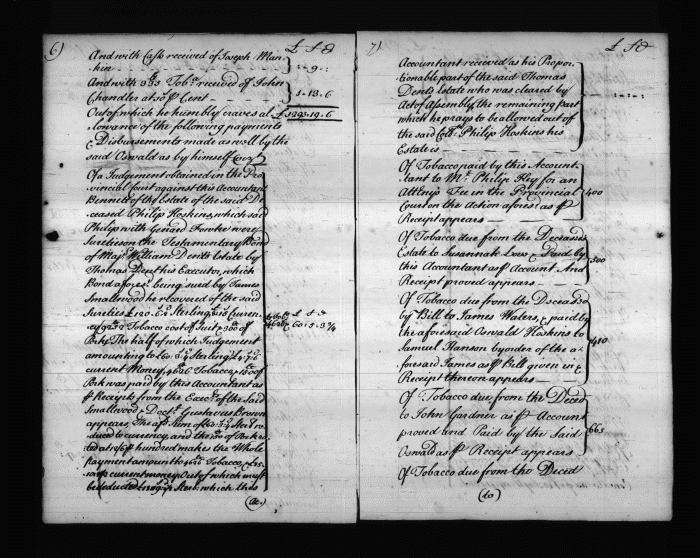 6)
£ S D
And with Cash received of Joseph Man-
kin - - - - - : - 9 - :
And with 335 Tobo. received of John
Chandler at 10/ ⅌ Cent - - 1 - 13 . 6
Out of which he humbly craves al-
lowance of the following payments
& Disbursements made as well by the
said Oswald as by himself (viz)
Of a Judgement obtained in the Pro
vincial Court against this Accountant
Bennett of the Estate of the said De
ceased Philip Hoskins, which said
Philip with Gerard Fowke were
Sureties on the Testamentary Bond
of Majr. William Dents Estate by
Thomas Dent his Executor, which
Bond afores. being sued by James
Smallwood he recovered of the said
Sureties Sterling Curren
Tobacco cost of Suit of
Pork. The half of which Judgement
amounting to Sterling
current Money, 4626 Tobacco of
Pork was paid by this Accountant as
⅌ Receipts from the Execr. of the said
Smallwood & Doctr. Gustavus Brown
appears The afd. Sum of Ster. re
duced to currency, and the of Pork ra
ted at ⅌ hundred makes the whole
payment amount to Tobacco
current money Out of which must
be deducted Ster. which this
(ac.)
7)
£ S D
Accountant received as his Propor
tionable part of the said Thomas
Dents Estate who was cleared by
Act of Assembly, the remaining part
which he prays to be allowed out off
the said Coll. Philip Hoskins his
Estate is
Of Tobacco paid by this Account-
tant to Mr. Philip Key for an
Attnys Fee in the Provincial 400
Court on the Action aforesd. as ⅌
Receipt appears
Of Tobacco due from the Deceased
Estate to Susannah Low & Paid by
this Accountant as ⅌ Account And
Receipt proved appears
Of Tobacco due from the Deceased
by Bill to James Waters, & paid by
the aforesaid Oswald Hoskins to
Samuel Hanson by order of the a-
foresaid James as ⅌ Bill given in &
Receipt thereon appears
Of Tobacco due from the Deced
to John Gardner as ⅌ Account
proved and Paid by the Said 665
Oswald as ⅌ Receipt appears
Of Tobacco due from the Deced
(to)